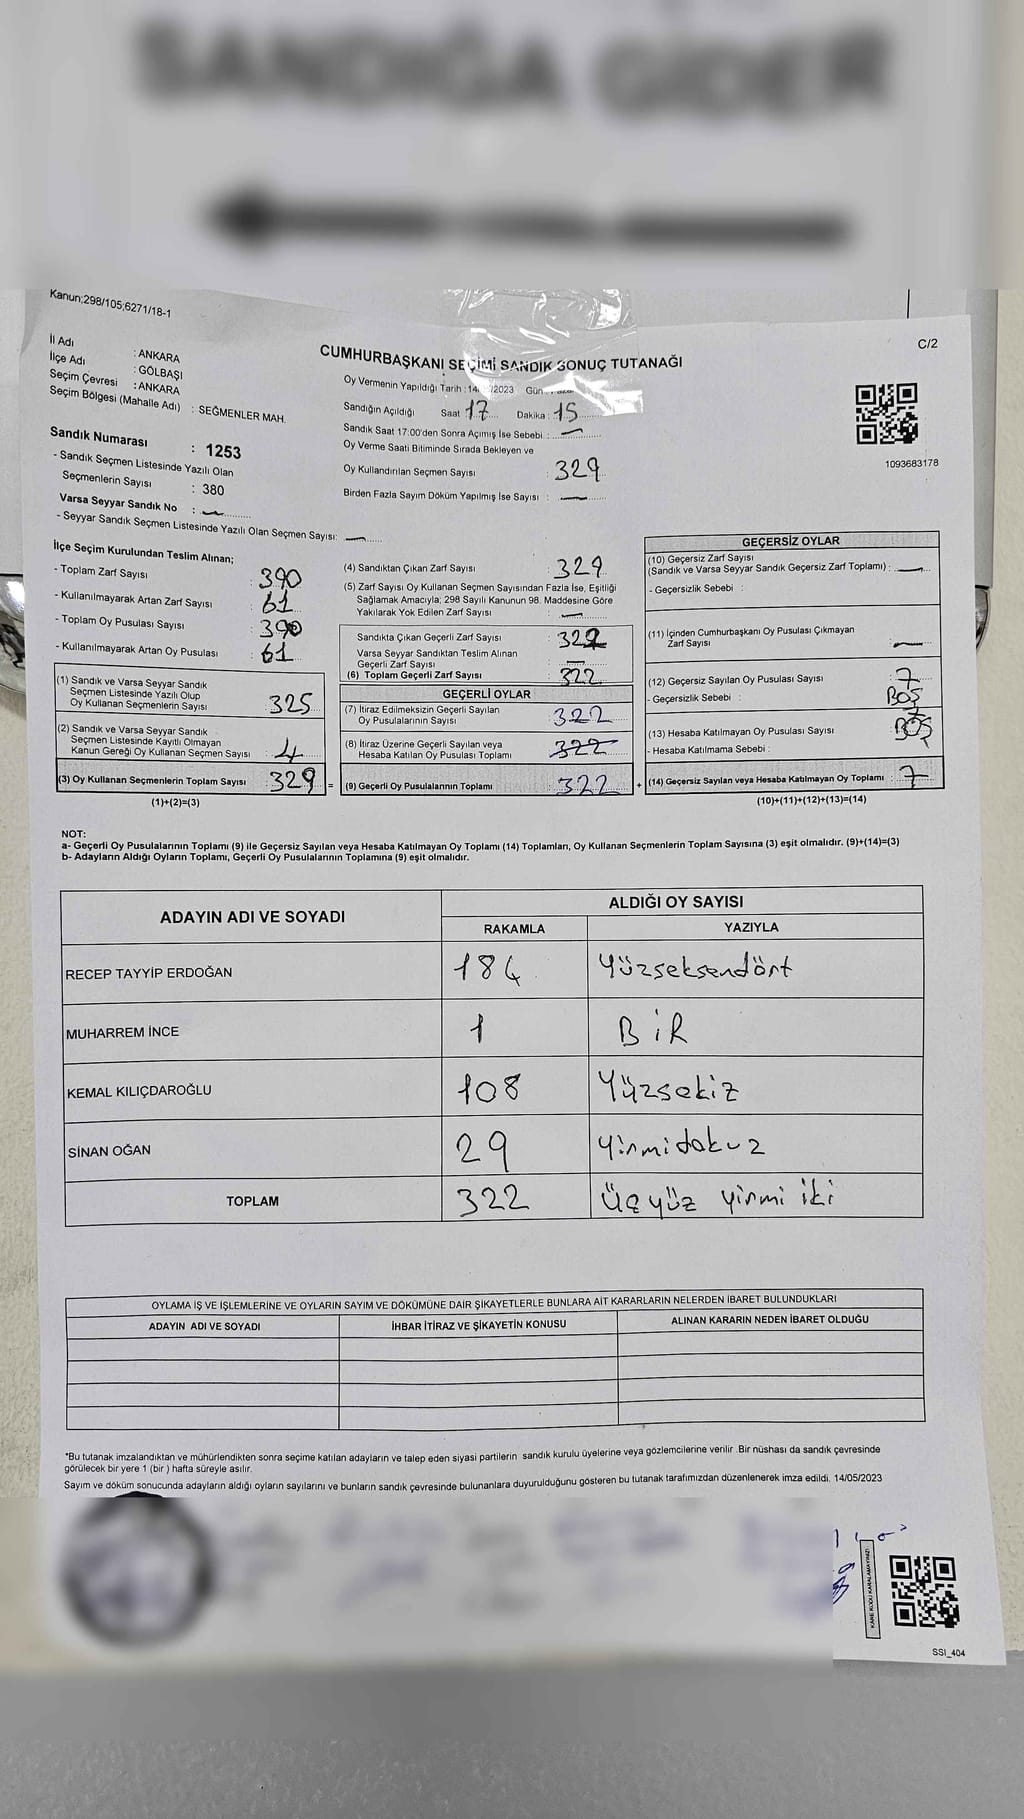 SANDIĞA GİDER
Kanun;298/105;6271/18-1
C/2
İl Adı : ANKARA
İlçe Adı : GÖLBAŞI
Seçim Çevresi : ANKARA
Seçim Bölgesi (Mahalle Adı) : SEĞMENLER MAH.
Sandık Numarası : 1253
- Sandık Seçmen Listesinde Yazılı Olan
Seçmenlerin Sayısı : 380
Varsa Seyyar Sandık No : —
- Seyyar Sandık Seçmen Listesinde Yazılı Olan Seçmen Sayısı: —
CUMHURBAŞKANI SEÇİMİ SANDIK SONUÇ TUTANAĞI
Oy Vermenin Yapıldığı Tarih : 14 /2023 Gün
Sandığın Açıldığı Saat 17 Dakika : 15
Sandık Saat 17:00'den Sonra Açımış İse Sebebi : —
Oy Verme Saati Bitiminde Sırada Bekleyen ve
Oy Kullandırılan Seçmen Sayısı : 329
Birden Fazla Sayım Döküm Yapılmış İse Sayısı : —
1093683178
İlçe Seçim Kurulundan Teslim Alınan;
- Toplam Zarf Sayısı : 390
- Kullanılmayarak Artan Zarf Sayısı : 61
- Toplam Oy Pusulası Sayısı : 390
- Kullanılmayarak Artan Oy Pusulası : 61
(1) Sandık ve Varsa Seyyar Sandık
Seçmen Listesinde Yazılı Olup
Oy Kullanan Seçmenlerin Sayısı : 325
(2) Sandık ve Varsa Seyyar Sandık
Seçmen Listesinde Kayıtlı Olmayan
Kanun Gereği Oy Kullanan Seçmen Sayısı : 4
(3) Oy Kullanan Seçmenlerin Toplam Sayısı : 329 =
(1)+(2)=(3)
(4) Sandıktan Çıkan Zarf Sayısı : 329
(5) Zarf Sayısı Oy Kullanan Seçmen Sayısından Fazla İse, Eşitliği
Sağlamak Amacıyla; 298 Sayılı Kanunun 98. Maddesine Göre
Yakılarak Yok Edilen Zarf Sayısı : —
Sandıkta Çıkan Geçerli Zarf Sayısı : 322
Varsa Seyyar Sandıktan Teslim Alınan
Geçerli Zarf Sayısı : —
(6) Toplam Geçerli Zarf Sayısı : 322
GEÇERLİ OYLAR
(7) İtiraz Edilmeksizin Geçerli Sayılan
Oy Pusulalarının Sayısı : 322
(8) İtiraz Üzerine Geçerli Sayılan veya
Hesaba Katılan Oy Pusulası Toplamı : 322
(9) Geçerli Oy Pusulalarının Toplamı : 322 +
GEÇERSİZ OYLAR
(10) Geçersiz Zarf Sayısı
(Sandık ve Varsa Seyyar Sandık Geçersiz Zarf Toplamı) : —
- Geçersizlik Sebebi :
(11) İçinden Cumhurbaşkanı Oy Pusulası Çıkmayan
Zarf Sayısı : —
(12) Geçersiz Sayılan Oy Pusulası Sayısı : 7
- Geçersizlik Sebebi : BOŞ
(13) Hesaba Katılmayan Oy Pusulası Sayısı : 7
- Hesaba Katılmama Sebebi : BOŞ
(14) Geçersiz Sayılan veya Hesaba Katılmayan Oy Toplamı : 7
(10)+(11)+(12)+(13)=(14)
NOT:
a- Geçerli Oy Pusulalarının Toplamı (9) ile Geçersiz Sayılan veya Hesaba Katılmayan Oy Toplamı (14) Toplamları, Oy Kullanan Seçmenlerin Toplam Sayısına (3) eşit olmalıdır. (9)+(14)=(3)
b- Adayların Aldığı Oyların Toplamı, Geçerli Oy Pusulalarının Toplamına (9) eşit olmalıdır.
ADAYIN ADI VE SOYADI ALDIĞI OY SAYISI
RAKAMLA YAZIYLA
RECEP TAYYİP ERDOĞAN 184 Yüzseksendört
MUHARREM İNCE 1 BİR
KEMAL KILIÇDAROĞLU 108 Yüzsekiz
SİNAN OĞAN 29 Yirmidokuz
TOPLAM 322 Üçyüz yirmi iki
OYLAMA İŞ VE İŞLEMLERİNE VE OYLARIN SAYIM VE DÖKÜMÜNE DAİR ŞİKAYETLERLE BUNLARA AİT KARARLARIN NELERDEN İBARET BULUNDUKLARI
ADAYIN ADI VE SOYADI İHBAR İTİRAZ VE ŞİKAYETİN KONUSU ALINAN KARARIN NEDEN İBARET OLDUĞU
*Bu tutanak imzalandıktan ve mühürlendikten sonra seçime katılan adayların ve talep eden siyasi partilerin sandık kurulu üyelerine veya gözlemcilerine verilir .Bir nüshası da sandık çevresinde
görülecek bir yere 1 (bir ) hafta süreyle asılır.
Sayım ve döküm sonucunda adayların aldığı oyların sayılarını ve bunların sandık çevresinde bulunanlara duyurulduğunu gösteren bu tutanak tarafımızdan düzenlenerek imza edildi. 14/05/2023
KARE KODU KARALAMAYINIZ!
SSI_404